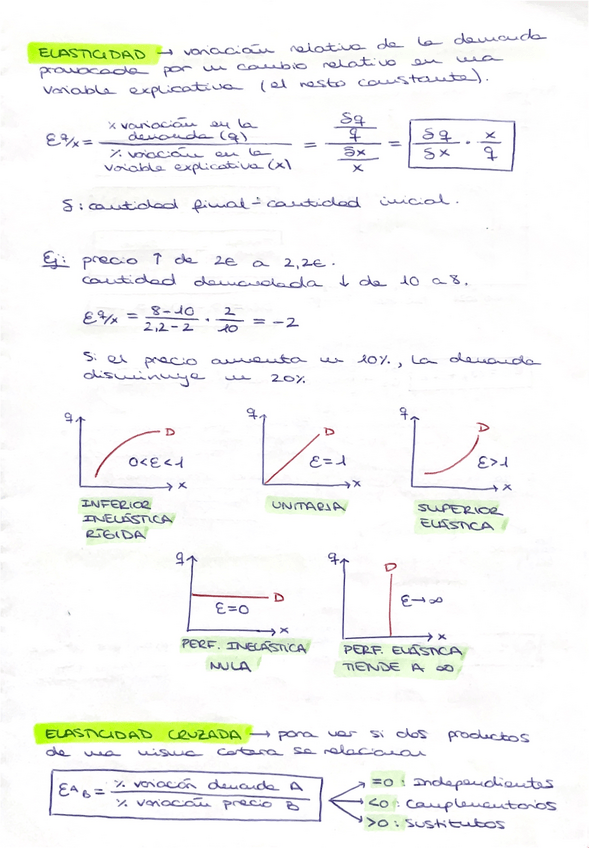 ELASTICIDAD → variación relativa de la demanda
provocada por un cambio relativo en una
variable explicativa (el resto constante).
εq/x = % variación en la demanda (q) / % variación en la variable explicativa (x) = (δq/q) / (δx/x) = δq/δx · x/q
δ: cantidad final - cantidad inicial.
Ej: precio ↑ de 2€ a 2,2€.
cantidad demandada ↓ de 10 a 8.
εq/x = 8-10 / 2,2-2 · 2/10 = -2
Si el precio aumenta un 10%, la demanda
disminuye un 20%
q D 0<ε<1 x
INFERIOR
INELÁSTICA
RÍGIDA
q D ε=1 x
UNITARIA
q D ε>1 x
SUPERIOR
ELÁSTICA
q D ε=0 x
PERF. INELÁSTICA
NULA
q D ε→∞ x
PERF. ELÁSTICA
TIENDE A ∞
ELASTICIDAD CRUZADA → para ver si dos productos
de una misma cartera se relacionan
εAB = % variación demanda A / % variación precio B
=0: Independientes
<0: Complementarios
>0: Sustitutos